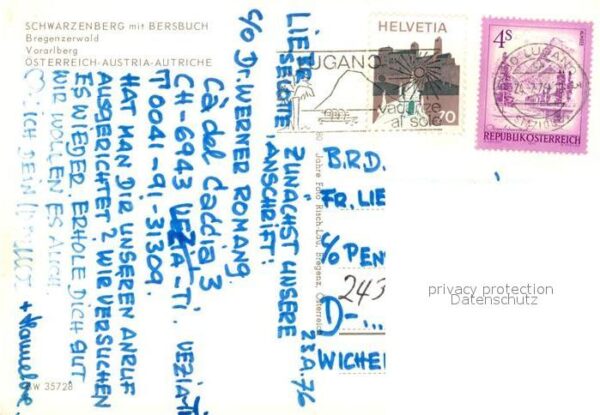 SCHWARZENBERG mit BERSBUCH
Bregenzerwald
Vorarlberg
ÖSTERREICH-AUSTRIA-AUTRICHE
HELVETIA
70
LUGANO
vacanze
al sole
4S
REPUBLIK ÖSTERREICH
LUGANO
23.A.76
LIEBE
LISELOTTE,
ZUNÄCHST UNSERE
ANSCHRIFT:
c/o Dr WERNER ROMANG.
Cà del Caccia 3
CH-6943 VEZIA-TI. VEZIA-TI
T 0041-91-31309.
HAT MAN DIR UNSEREN ANRUF
AUSGERICHTET? WIR VERSUCHEN
ES WIEDER. ERHOLE DICH GUT.
WIR WOLLEN ES AUCH.
: ICH DEIN
+ Hannelore.
Jahre Foto Risch-Lau, Bregenz, Österreich
B.R.D.
FR. LIE
c/o PEN
243
D-...
WICHE
privacy protection
Datenschutz
W 35728